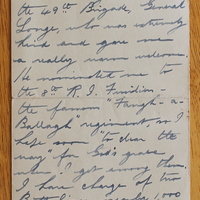 the 49th Brigade, General
Longe, who was extremely
kind and gave me
a really warm welcome.
He nominated me to
the 8th R. I. Fusiliers -
the famous "Faugh-a-
Ballagh" regiment so I
hope soon "to clear the
way" for God's grace
when I get among them.
I have charge of two
1000